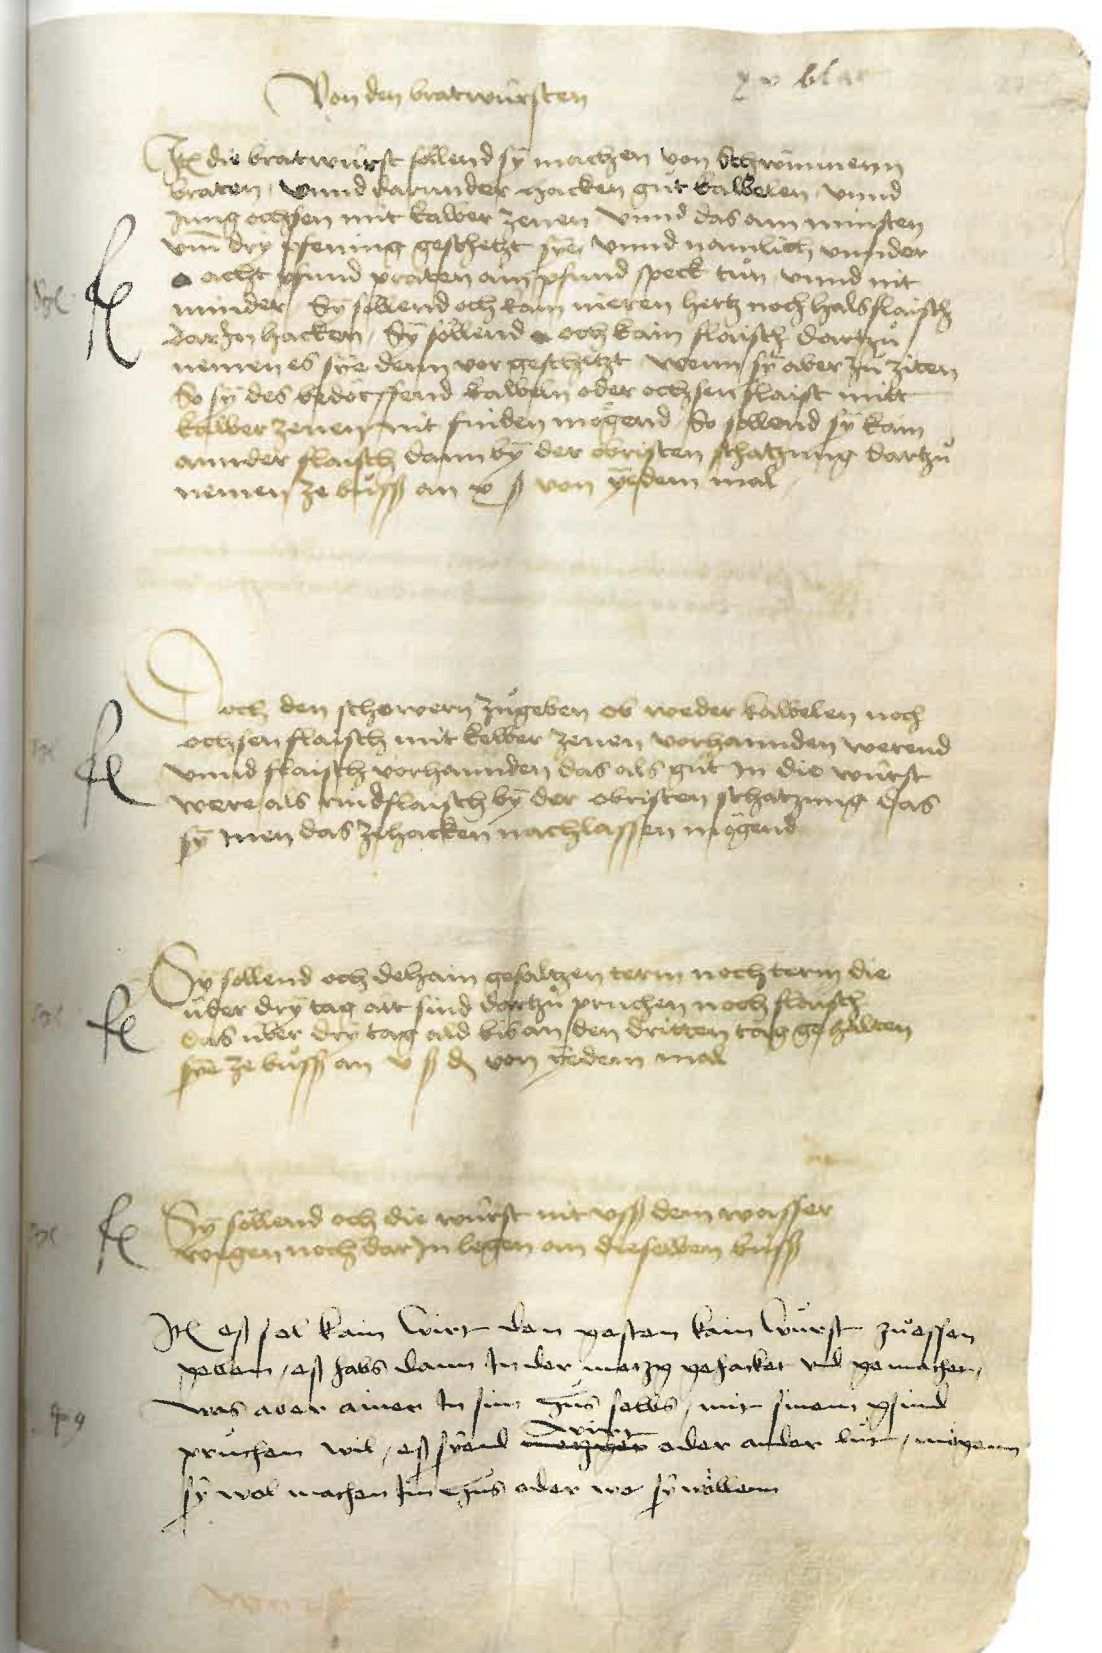 xv blat
Von den bratwürsten
Itē die bratwürst söllend sÿ machen von Schwinninen
braten / vnnd darunder hacken gůt kalbelen / vnnd
Jung ochsen mit kalber zenen vnnd das am minsten
vm̄ drÿ pfening geschetzt sÿe / vnnd namlich vnnder
acht pfund praten ain pfund speck tůn / vnnd nit
minder / Sÿ söllend och kain nieren hertz noch halsflaisch
darJn hacken / Sÿ söllend och kain flaisch dartzů
nemen es sÿe denn vor geschetzt wenn sÿ aber zů ziten
So sÿ des bedörffend kalbeln oder ochsen flaisch mitt
kelber zenen nit finden mögend / So söllend sÿ kain
annder flaisch dann bÿ der obristen schatzung dartzů
nemen ze bůss an x ß von ÿedem mal
Doch den schowern zůgeben ob weder kalbelen noch
ochsen flaisch mit kelber zenen vorhannden werend
vnnd flaisch vorhannden das als gůt Jn die würst
were als rindflaisch bÿ der obristen schatzung das
sÿ Jnen das ze hacken nachlassen mögend
Sÿ söllend och dehain gesaltzen term noch term die
über drÿ tag alt sind dartzů pruchen noch flaisch
das über drÿ tag ald bis an den dritten tag gehalten
sÿe ze bůss an v ß d von ÿedem mal
Sÿ söllend och die würst nit vss dem wasser
wegen noch dar Jn legen an dieselben bůss
Itē eß sol kain wirt den gesten kain würst zů essen
geben / eß habs dann Jn der metzg gehacket vnd gemachet /
was aber ainer Jn sim hus selbs / mit sinem gsind
wirt
pruchen wil / eß sÿend metzger oder ander lüt / mögenn
sÿ wol machen Jm hus oder wo sÿ wöllenn